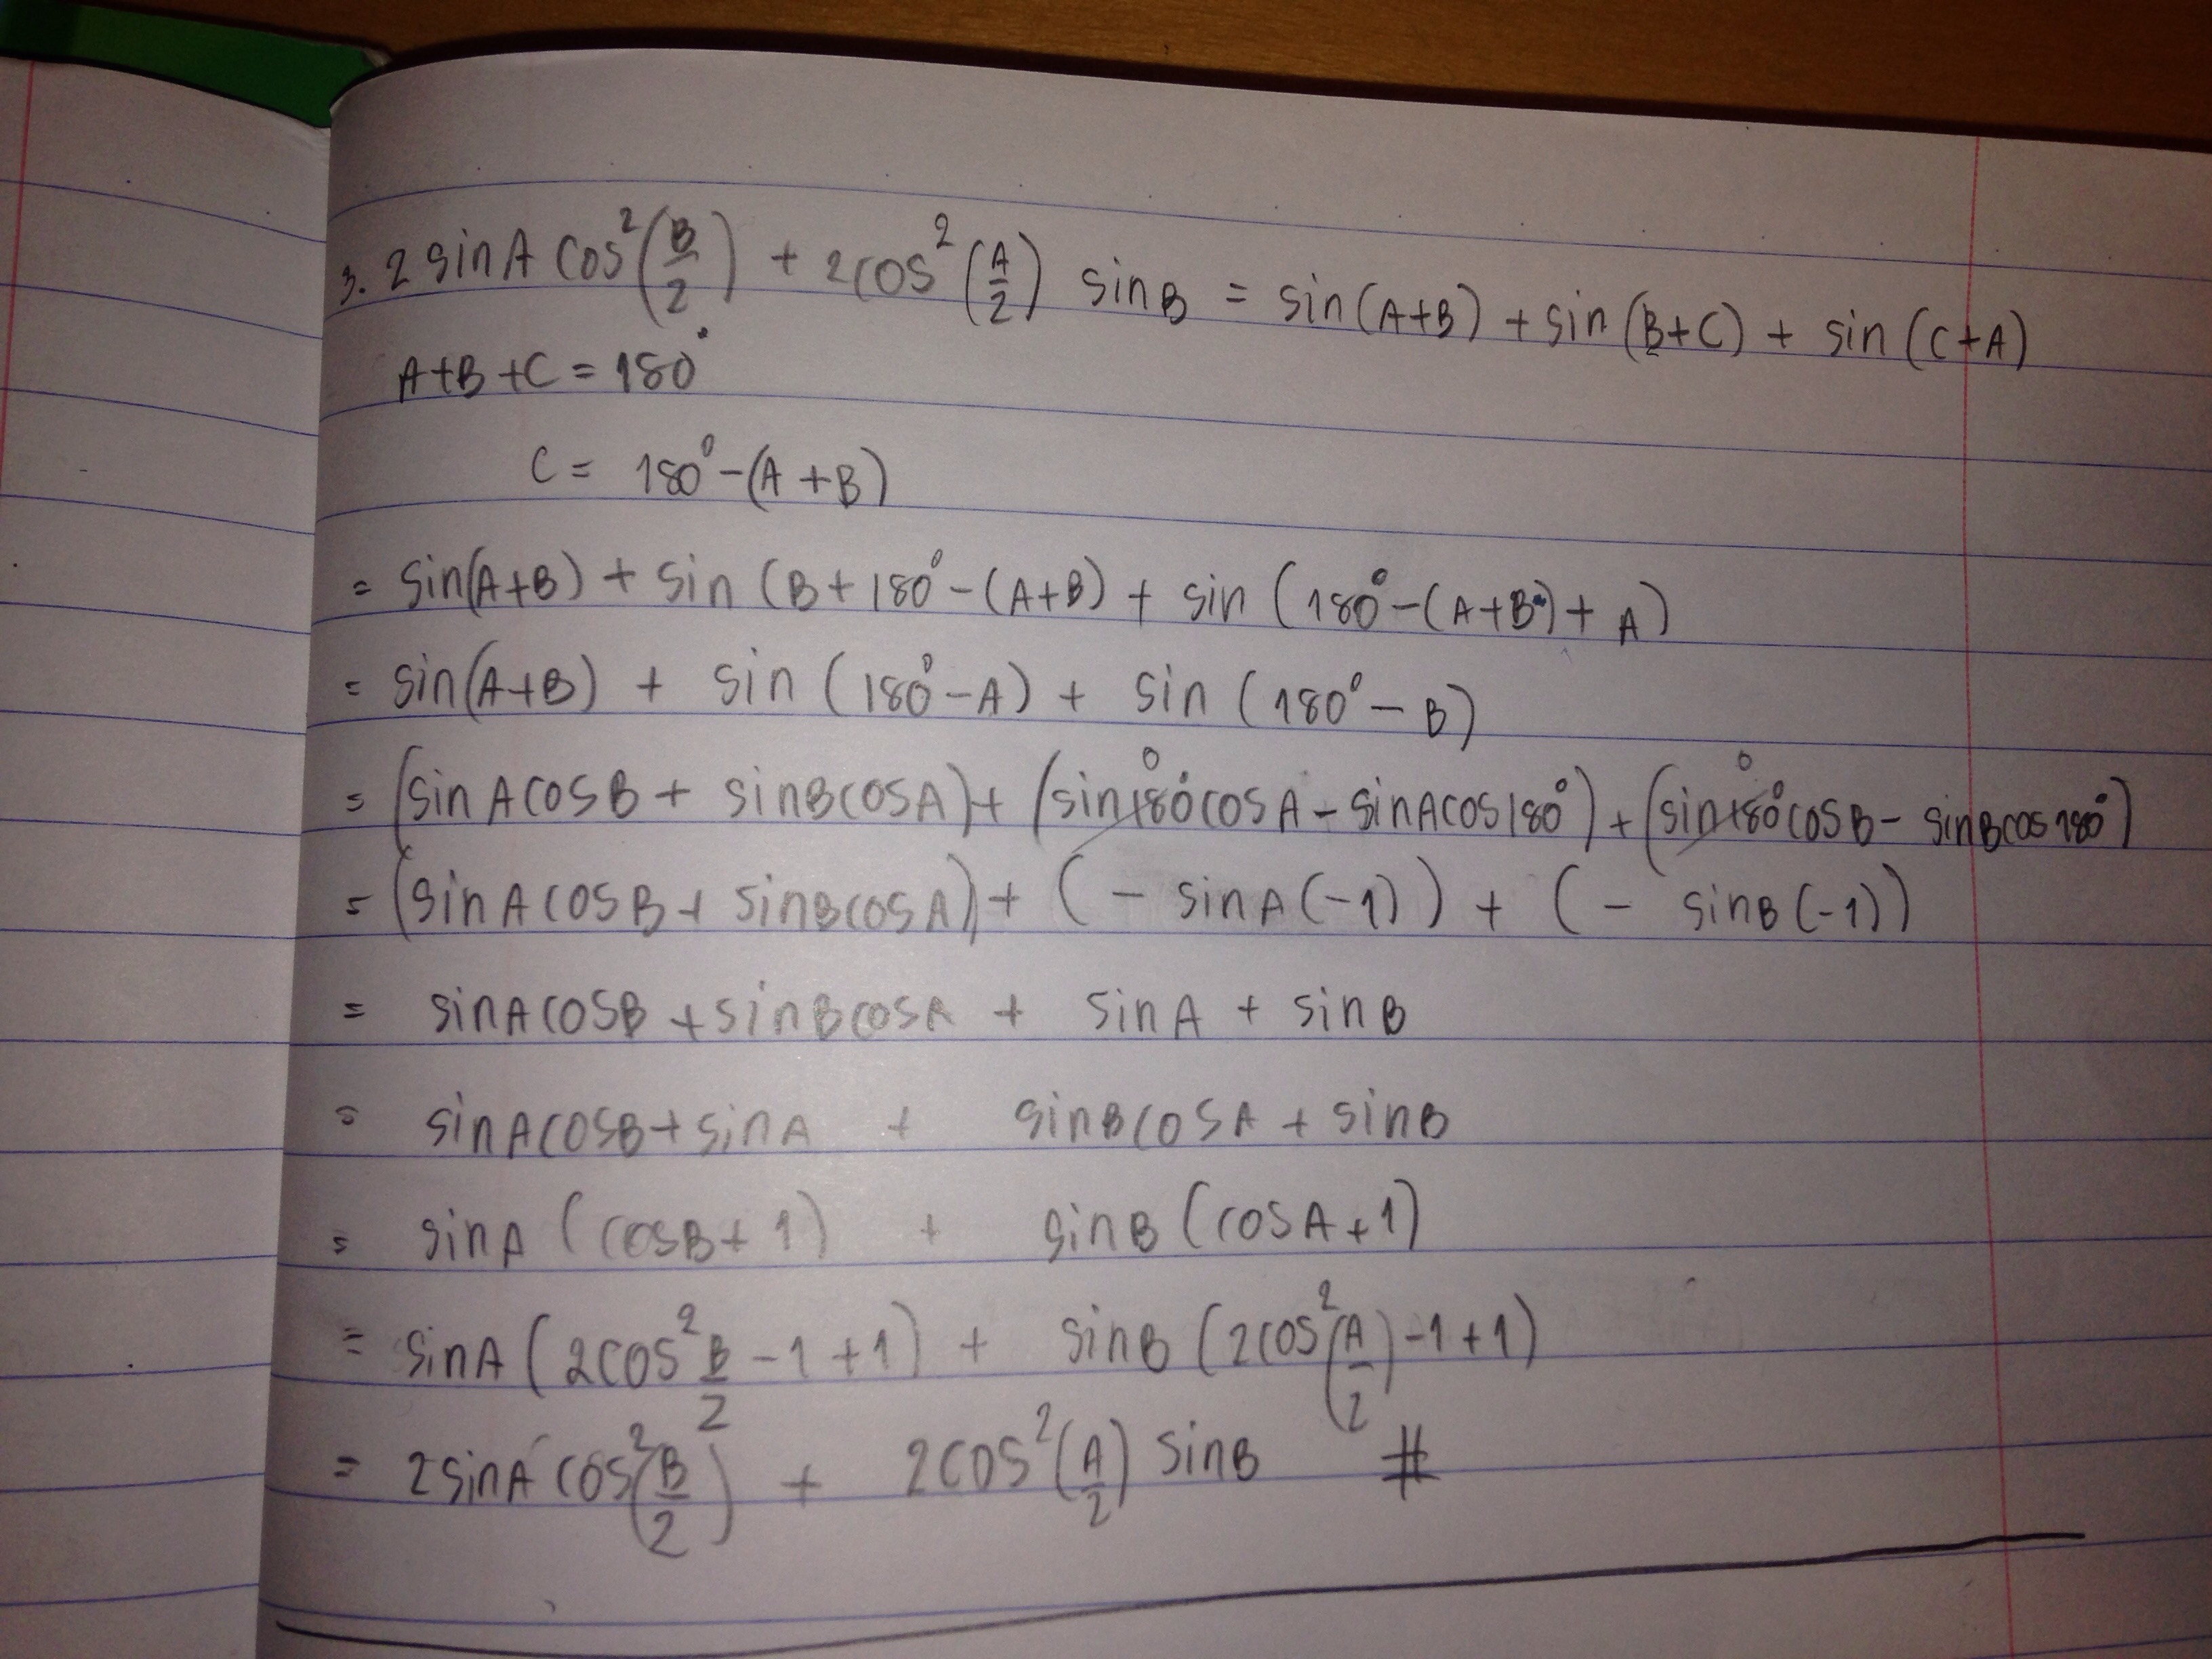 3. 2 sinA cos²(B/2) + 2cos²(A/2) sinB = sin(A+B) + sin(B+C) + sin(C+A)
A+B+C = 180°
C = 180° - (A+B)
= sin(A+B) + sin(B+180° - (A+B) + sin(180° - (A+B) + A)
= sin(A+B) + sin(180° - A) + sin(180° - B)
= (sinAcosB + sinBcosA) + (sin180°cosA - sinAcos180°) + (sin180°cosB - sinBcos180°)
= (sinAcosB + sinBcosA) + (- sinA(-1)) + (- sinB(-1))
= sinAcosB + sinBcosA + sinA + sinB
= sinAcosB + sinA + sinBcosA + sinB
= sinA(cosB + 1) + sinB(cosA + 1)
= sinA(2cos² B/2 - 1 + 1) + sinB(2cos²(A/2) - 1 + 1)
= 2sinA cos²(B/2) + 2cos²(A/2) sinB #